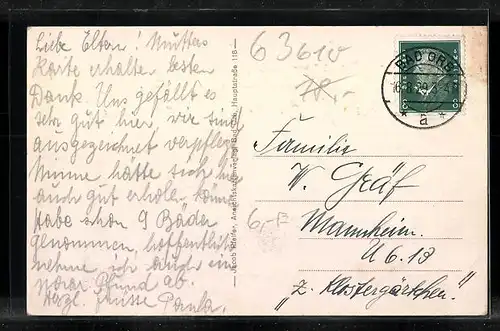 Liebe Eltern! Mutters
Karte erhalten besten
Dank. Uns gefällt es
sehr gut hier, wir sind
ausgezeichnet verpflegt
Minne hätte sich hier
auch gut erholen könn
Habe schon 9 Bäder
genommen, hoffentlich
nehme ich auch ein
paar Pfund ab.
Herzl. Grüsse Paula.
Hauptstraße 118
63610
78,-
6,-E
BAD ORB
a
8
8
Familie
W. Gräf
Mannheim.
U 6. 13
"z. Klostergärtchen."